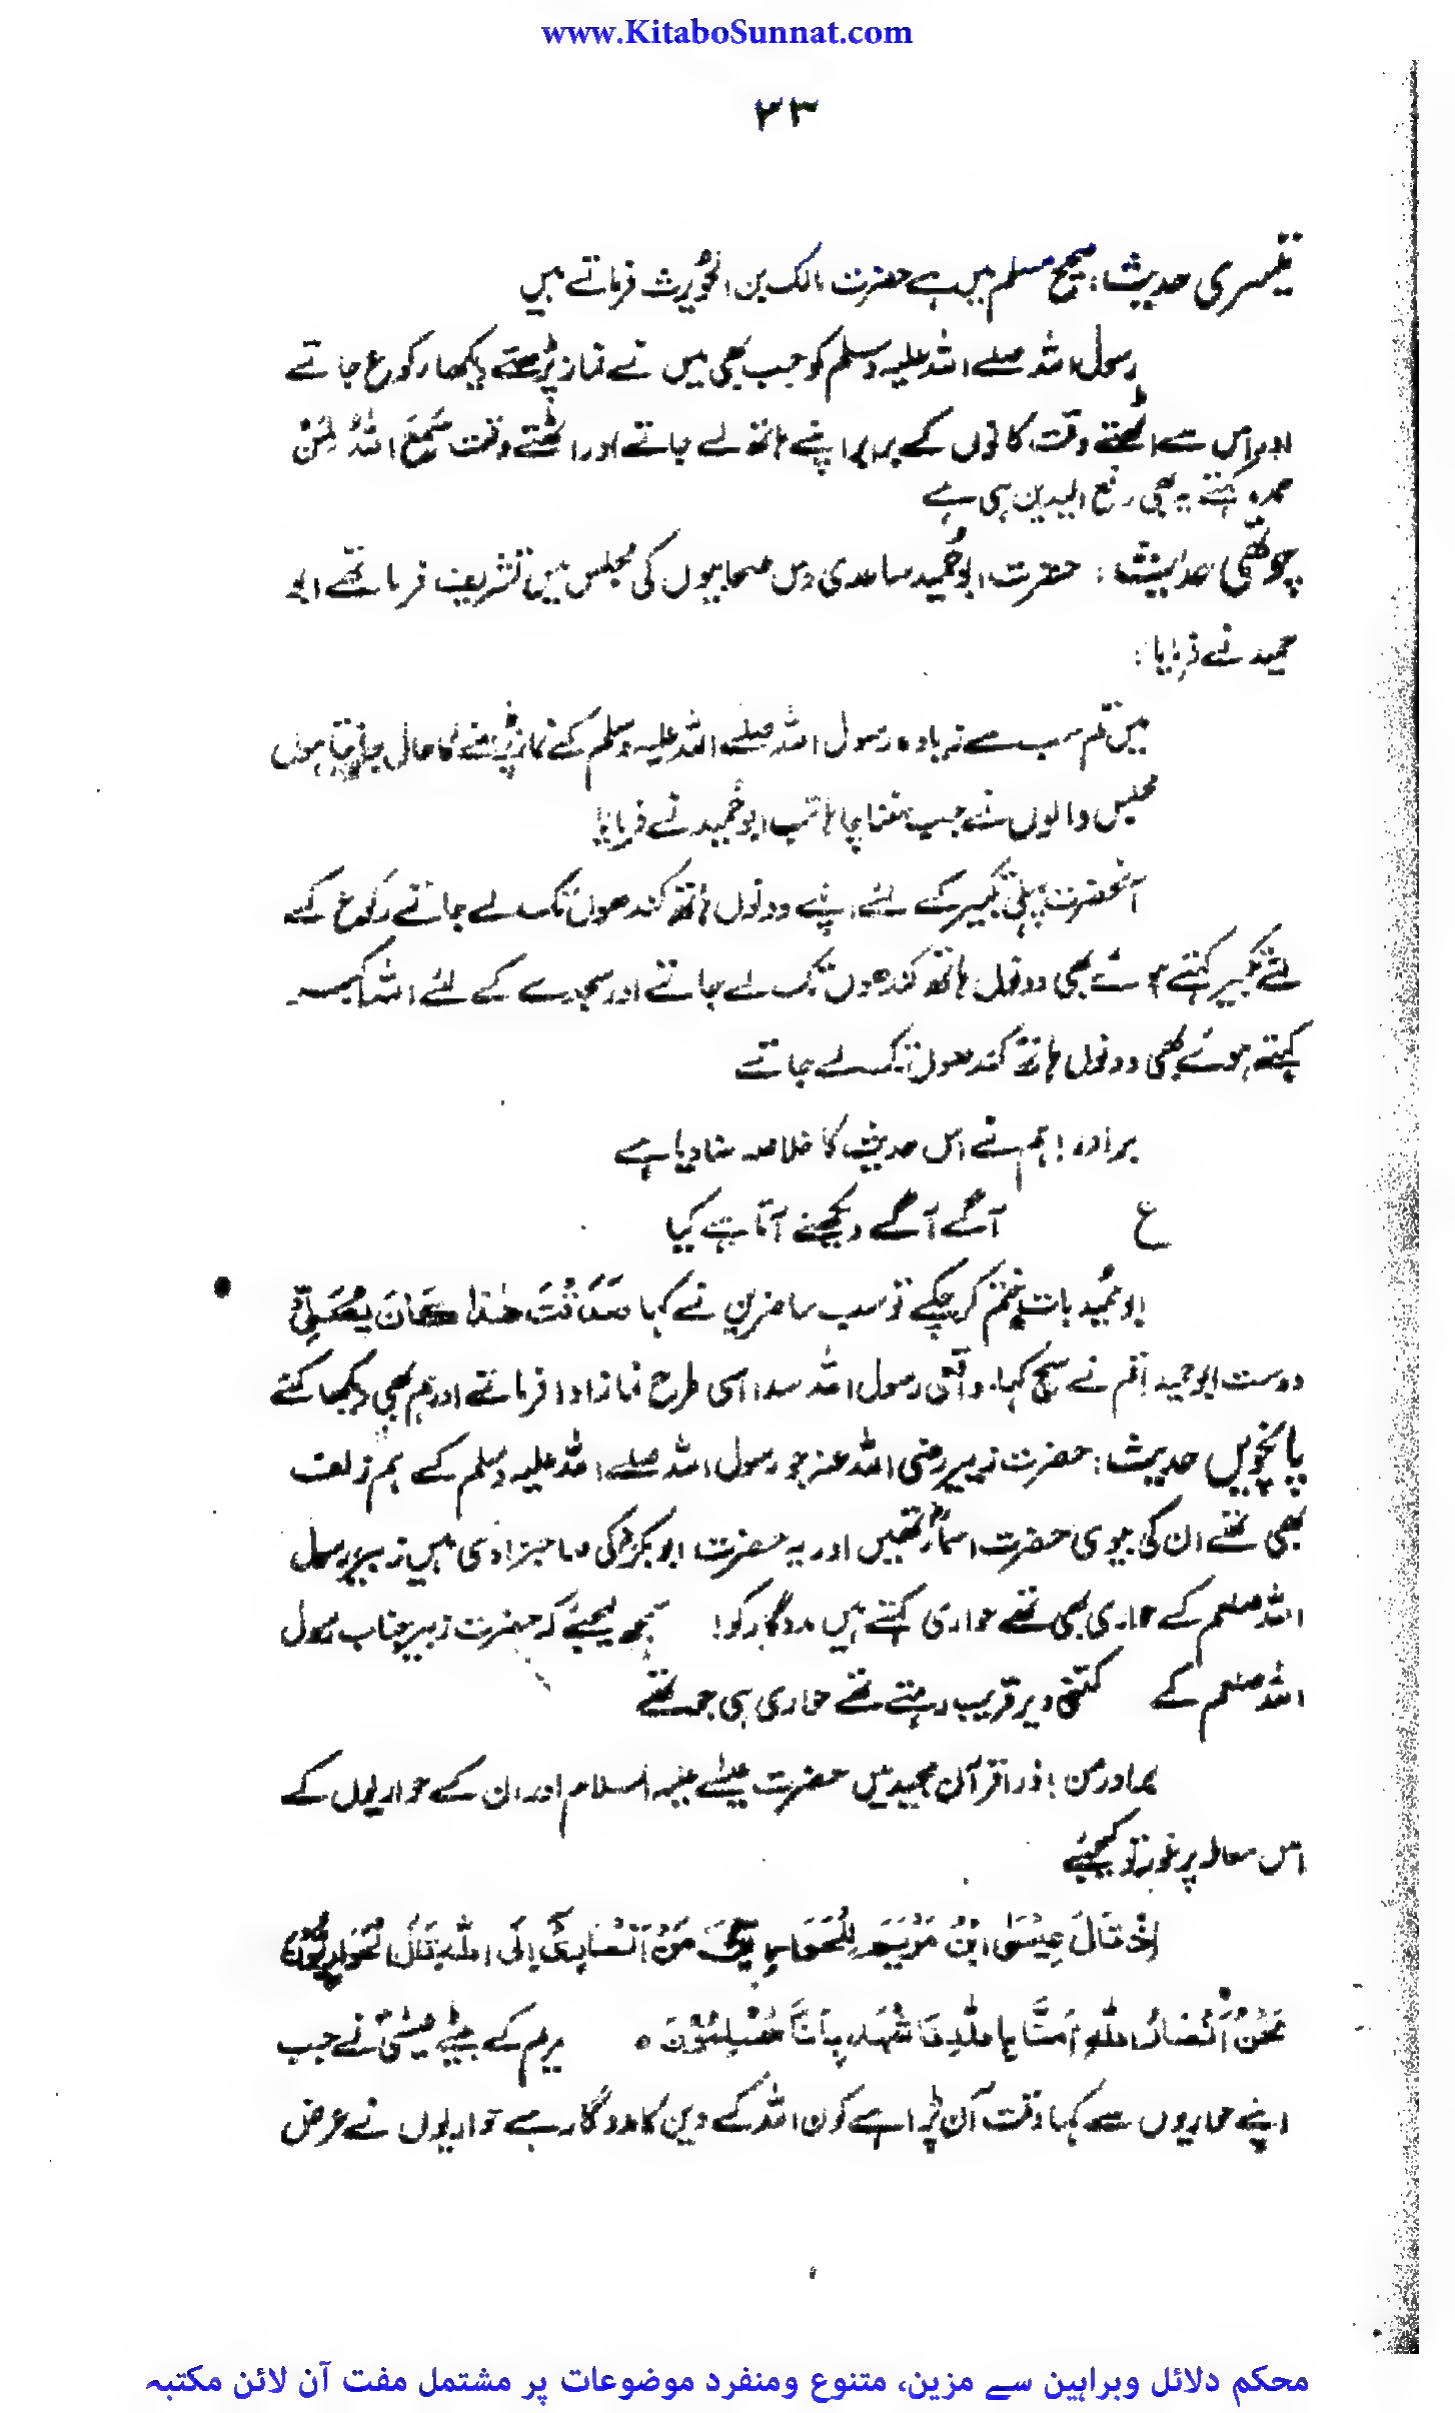 www.KitaboSunnat.com
۲۳
تیسری حدیث: صحیح مسلم میں ہے حضرت مالک بن الحویرث فرماتے ہیں
رسول اللہ صلے اللہ علیہ وسلم کو جب بھی میں نے نماز پڑھتے دیکھا رکوع جاتے
اور اس سے اٹھتے وقت کانوں کے برابر اپنے ہاتھ لے جاتے اور اٹھتے وقت سَمِعَ اللہُ لِمَنْ
حمدہ کہتے یہ بھی رفع الیدین ہی ہے
چوتھی حدیث: حضرت ابوحُمید ساعدی دس صحابیوں کی مجلس میں تشریف فرما تھے ابو
حمید نے فرمایا:
میں تم سب سے زیادہ رسول اللہ صلے اللہ علیہ وسلم کے نماز پڑھنے کا حال جانتا ہوں
مجلس والوں نے جب سننا چاہا تب ابوحُمید نے فرمایا
آنحضرت پہلی تکبیر کے لئے اپنے دونوں ہاتھ کندھوں تک لے جاتے رکوع کے
لئے تکبیر کہتے ہوئے بھی دونوں ہاتھ کندھوں تک لے جاتے اور سجدے کے لئے اللہ اکبر
کہتے ہوئے بھی دونوں ہاتھ کندھوں تک لے جاتے
برادر! ہم نے اس حدیث کا خلاصہ سنا دیا ہے
ع آگے آگے دیکھئے آتا ہے کیا
ابوحُمید بات ختم کر چکے تو سب حاضرین نے کہا صَدَقْتَ ھٰذا کَانَ یُصَلِّیْ
دوست ابوحمید! تم نے سچ کہا۔ واقعی رسول اللہ سدا اسی طرح نماز ادا فرماتے اور ہم بھی دیکھا کئے
پانچویں حدیث: حضرت زبیر رضی اللہ عنہ جو رسول اللہ صلے اللہ علیہ وسلم کے ہم زلف
بھی تھے ان کی بیوی حضرت اسماءؓ تھیں اور یہ حضرت ابوبکرؓ کی صاحبزادی ہیں زبیر رسول
اللہ صلعم کے حواری بھی تھے حواری کہتے ہیں مددگار کو! سمجھ لیجئے کہ حضرت زبیر جناب رسول
اللہ صلعم کے کتنی دیر قریب رہتے تھے حواری ہی جو تھے
برادر من! ذرا قرآن مجید میں حضرت عیسٰے علیہ السلام اور ان کے حواریوں کے
اس معاملہ پر غور تو کیجئے
اِذْ قَالَ عِیْسَی ابْنُ مَرْیَمَ لِلْحَوَارِیّٖنَ مَنْ اَنْصَارِیْ اِلَی اللہِ قَالَ الْحَوَارِیُّوْنَ
نَحْنُ اَنْصَارُ اللہِ اٰمَنَّا بِاللہِ وَاشْهَدْ بِاَنَّا مُسْلِمُوْنَ ہ مریم کے بیٹے عیسٰیؑ نے جب
اپنے حواریوں سے کہا وقت آن پڑا ہے کون اللہ کے دین کا مددگار ہے حواریوں نے عرض
محکم دلائل وبراہین سے مزین، متنوع ومنفرد موضوعات پر مشتمل مفت آن لائن مکتبہ